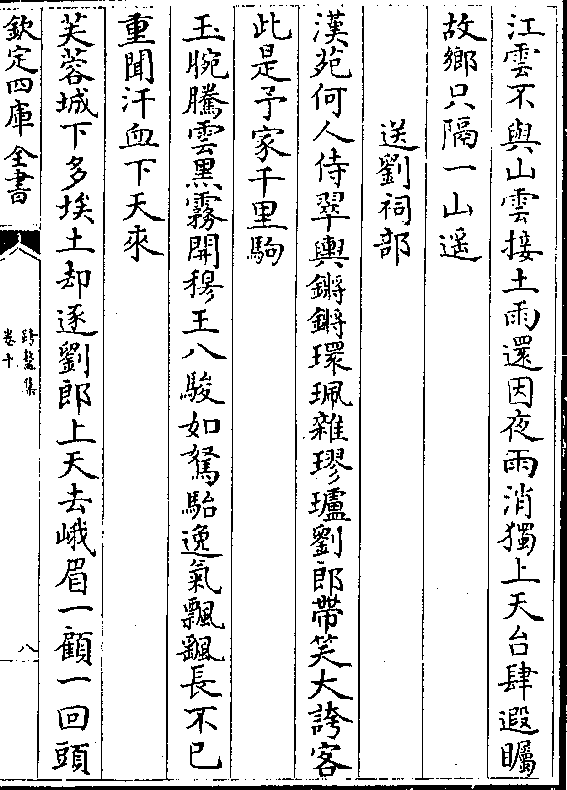 江雲不與山雲接土雨還因夜雨消獨上天台肆遐矚
故鄉只隔一山遥
送劉祠部
漢苑何人侍翠輿鏘鏘環珮雜璆瓐劉郎帶笑大誇客
此是予家千里駒
玉腕騰雲黑霧開穆王八駿如駑駘逸氣飄飄長不已
重聞汗血下天來
芙蓉城下多埃土却逐劉郎上天去峨眉一顧一回頭
欽定四庫全書
跨鼇集
卷十
八